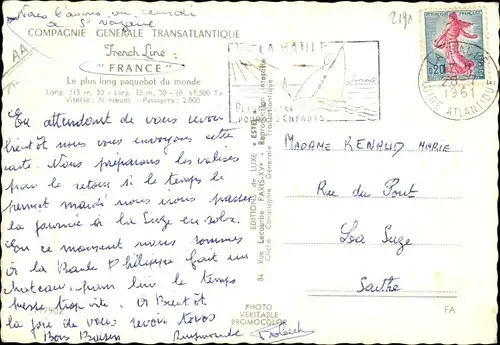 Nous l'avons vu samedi
à St Nazaire
COMPAGNIE GENERALE TRANSATLANTIQUE
French Line
"FRANCE"
Le plus long paquebot du monde
Long. 315 m, 50 - Larg. 33 m, 70 - 67.500 Tx
Vitesse : 31 nœuds - Passagers : 2.000
En attendant de vous revoir
bientôt nous vous envoyons cette
carte. Nous préparons les valises
pour le retour si le temps le
permet mardi nous irons passer
la journée à la Suze en
En ce moment nous sommes
à la Baule Philippe fait un
chateau, pour lui le temps
passe trop vite. A Bientôt
la joie de vous revoir tous
Bons Baisers Raymonde
AA
LA BAULE
POUR ENFANTS
0,20
1961
LOIRE ATLANTIQUE
EDITIONS de LUXE "ESTEL"
84 Rue Lecourbe PARIS-XVe
Reproduction interdite
Cliché Compagnie Générale Transatlantique
MADAME RENAUD MARIE
Rue du Pont
La Suze
Sarthe
PHOTO
VERITABLE
BROMOCOLOR
FA